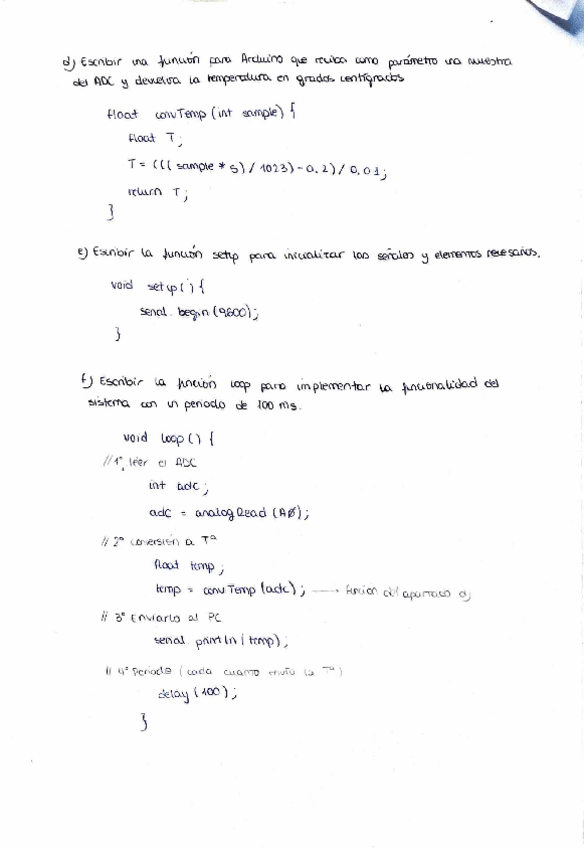 d) Escribir una función para Arduino que reciba como parámetro una muestra
del ADC y devuelva la temperatura en grados centígrados
float convTemp (int sample) {
float T;
T = (((sample * 5) / 1023) - 0.2) / 0.01;
return T;
}
e) Escribir la función setup para inicializar las señales y elementos necesarios.
void setup() {
serial.begin (9600);
}
f) Escribir la función loop para implementar la funcionalidad del
sistema con un periodo de 100 ms.
void loop() {
//1º leer el ADC
int adc;
adc = analogRead (A0);
// 2º conversión a Tª
float temp;
temp = convTemp (adc); → función del apartado d)
// 3º Enviarlo al PC
serial.println (temp);
// 4º Periodo (cada cuanto envía la Tª)
delay (100);
}